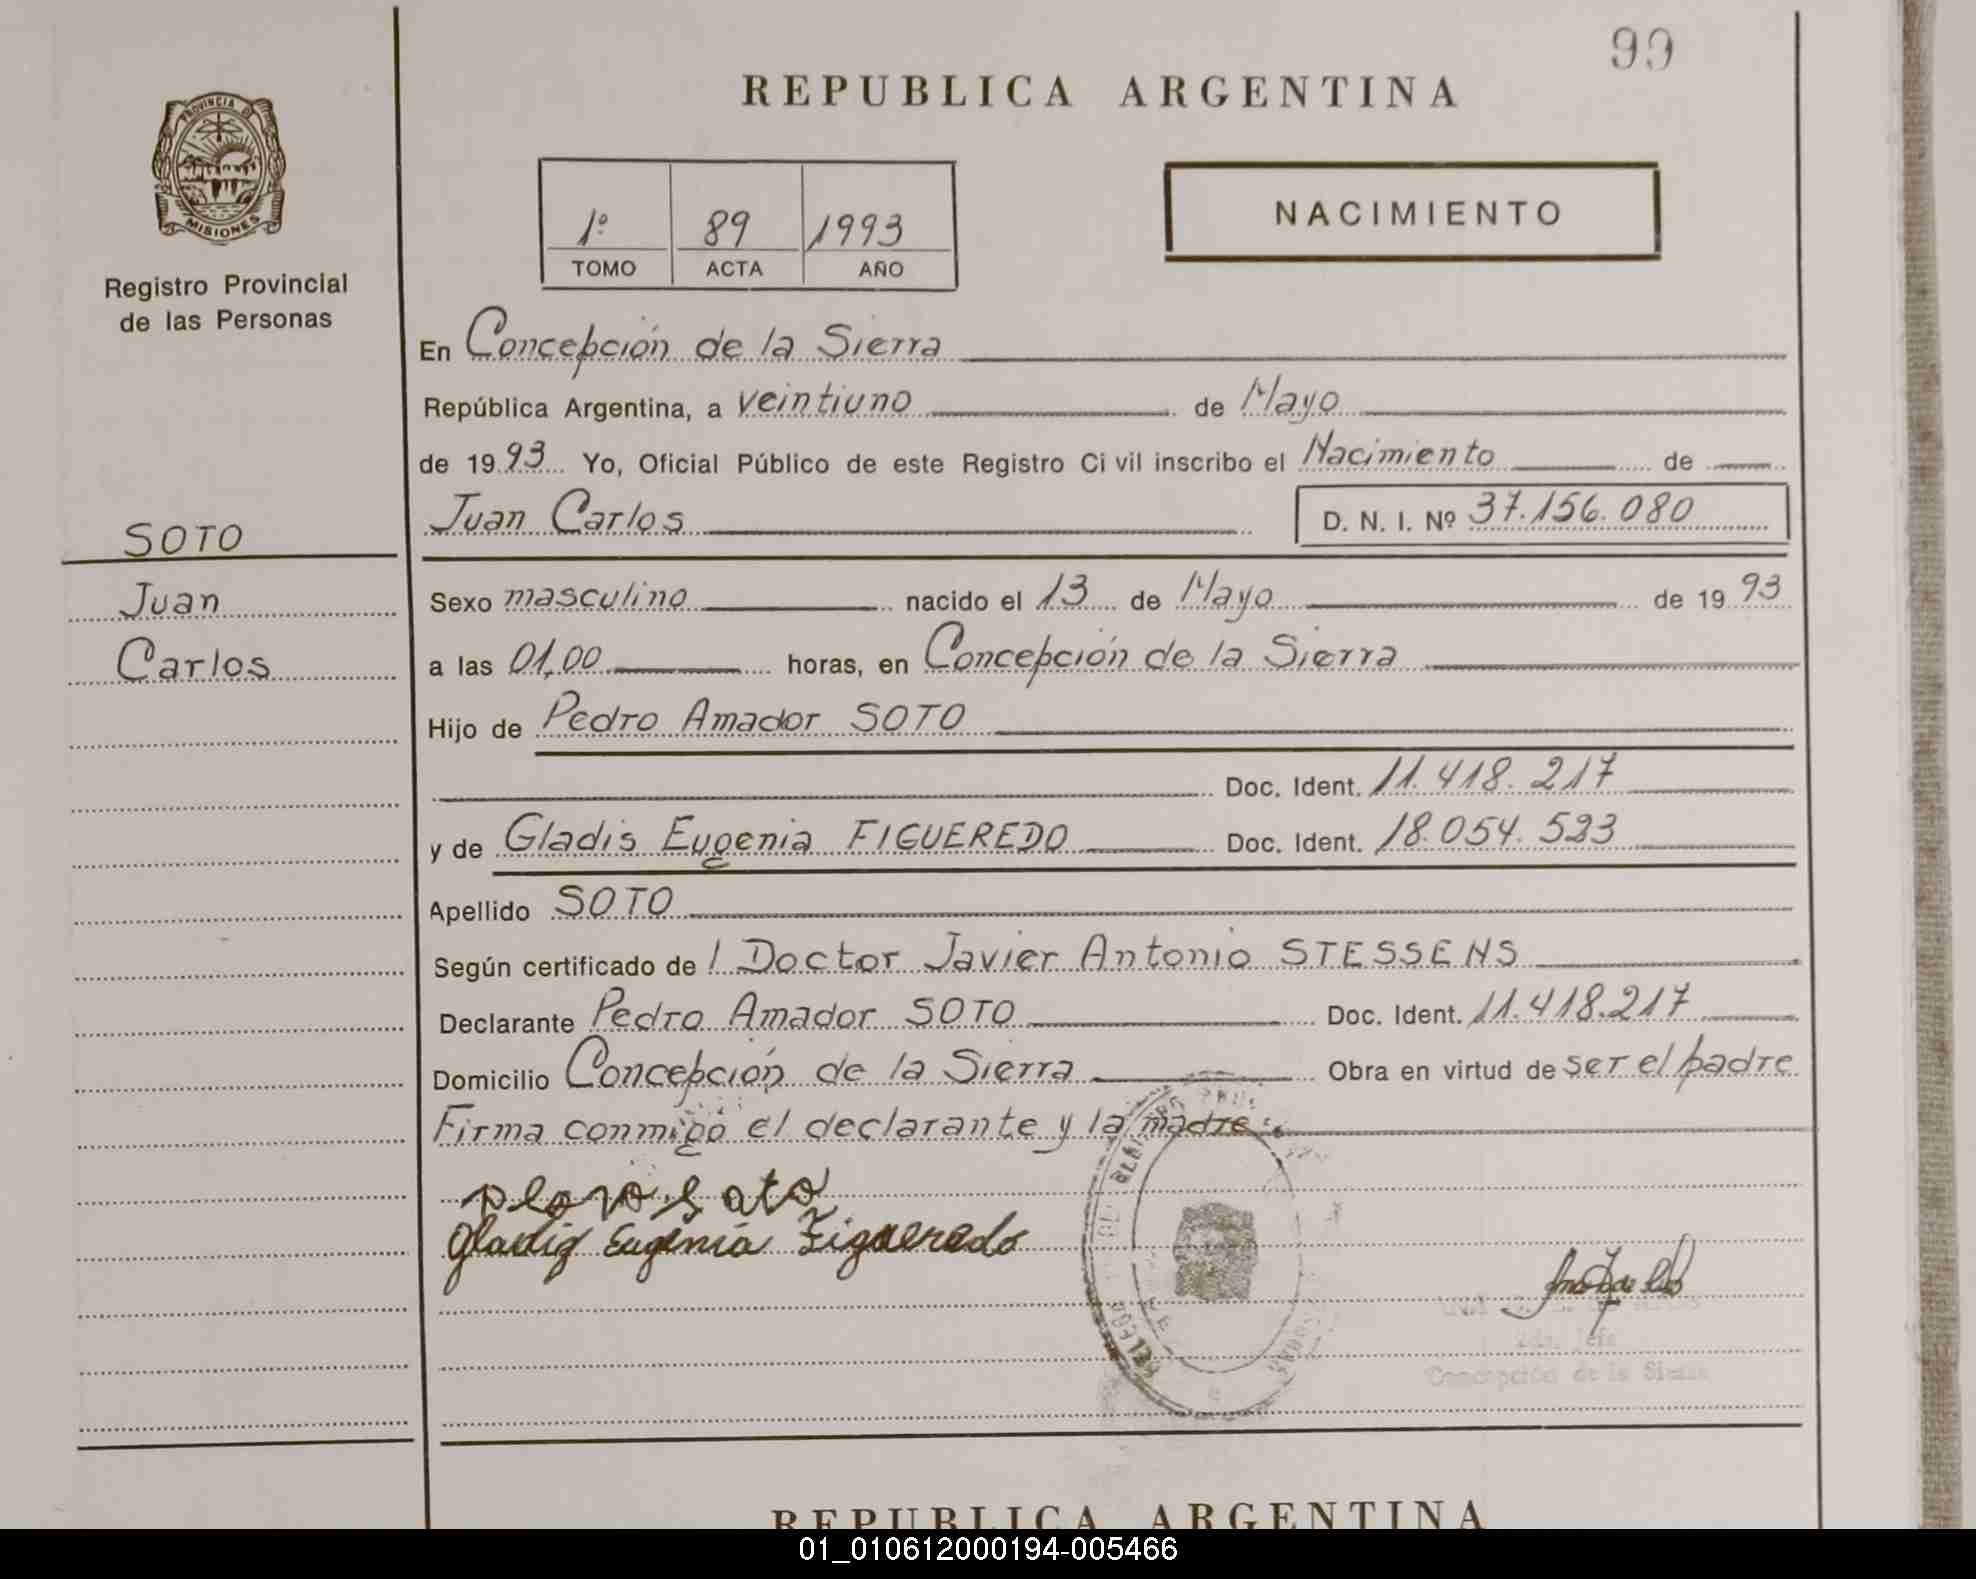 99
REPUBLICA ARGENTINA
PROVINCIA DE
MISIONES
Registro Provincial
de las Personas
1º 89 1993
TOMO ACTA AÑO
NACIMIENTO
En Concepción de la Sierra
República Argentina, a veintiuno de Mayo
de 1993 Yo, Oficial Público de este Registro Civil inscribo el Nacimiento de
Juan Carlos D. N. I. Nº 37.156.080
SOTO
Juan
Carlos
Sexo masculino nacido el 13 de Mayo de 1993
a las 01,00 horas, en Concepción de la Sierra
Hijo de Pedro Amador SOTO
Doc. Ident. 11.418.217
y de Gladis Eugenia FIGUEREDO Doc. Ident. 18.054.523
Apellido SOTO
Según certificado de l Doctor Javier Antonio STESSENS
Declarante Pedro Amador SOTO Doc. Ident. 11.418.217
Domicilio Concepción de la Sierra Obra en virtud de ser el padre
Firma conmigo el declarante y la madre.
Gladis Eugenia Figueredo
Jefa
Concepción de la Sierra
REPUBLICA ARGENTINA
01_010612000194-005466